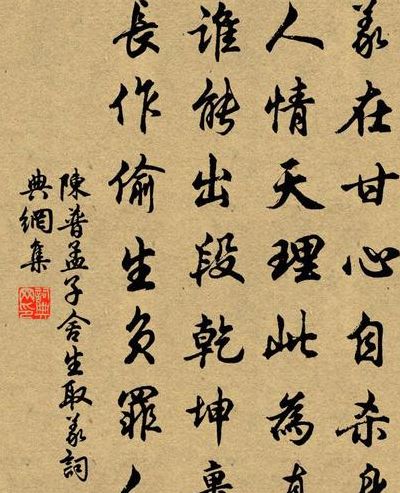 義在甘心自杀身
人情天理此為真
誰能出段乾坤裏
長作偷生負罪人
陳普孟子舍生取義詞
典網集
詞典網印